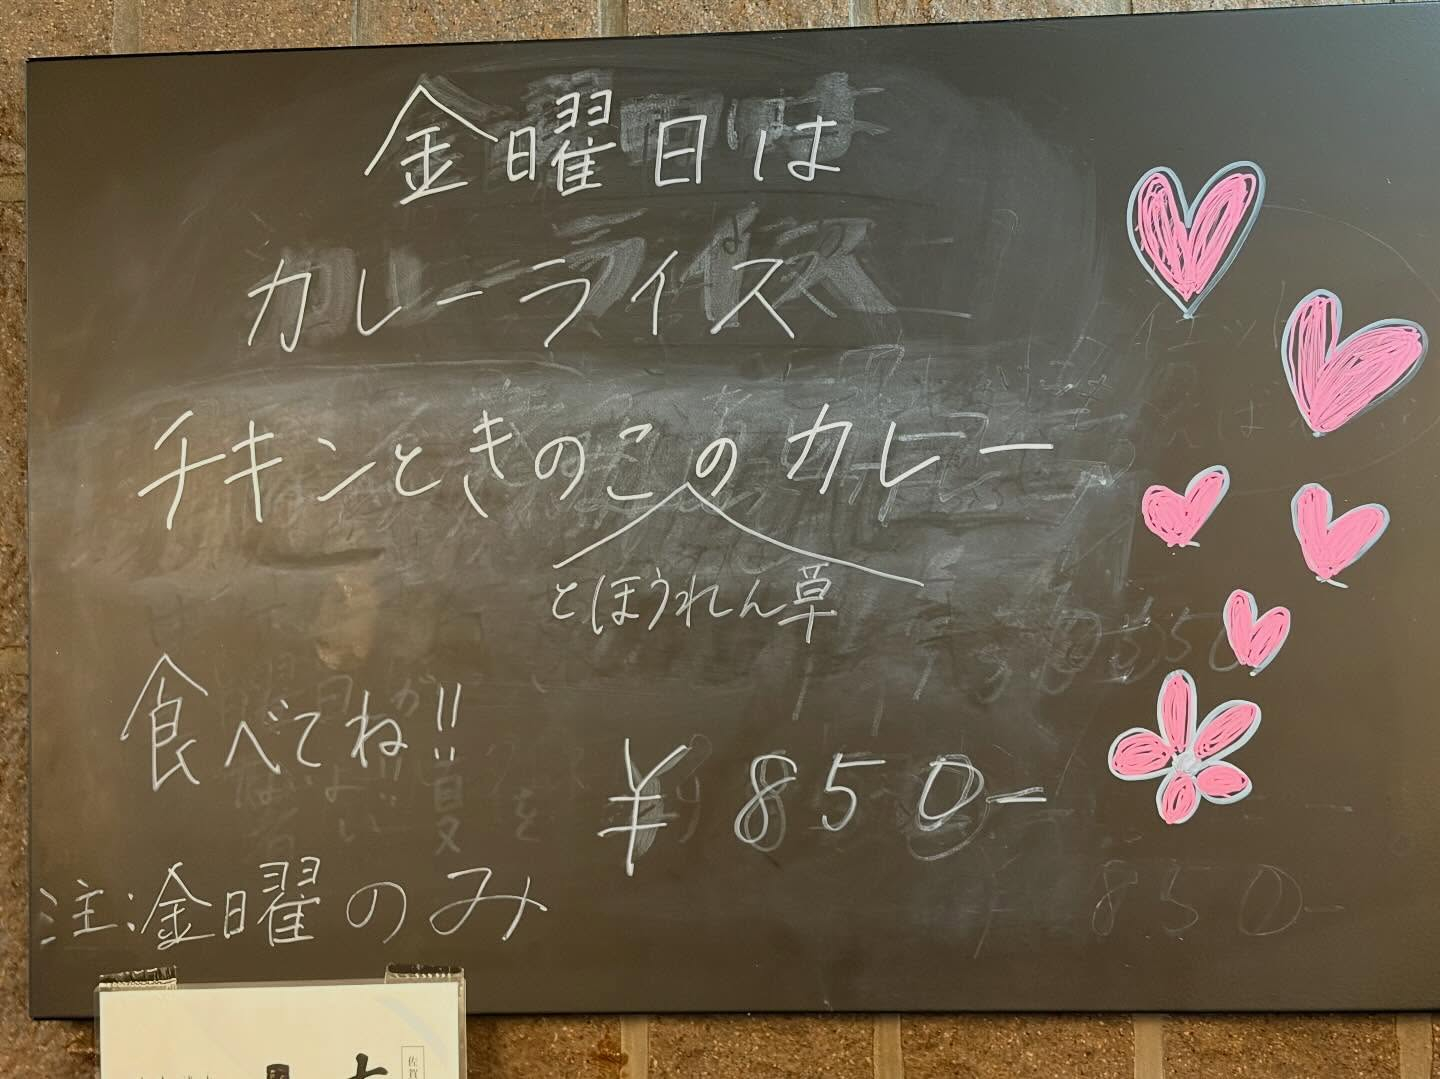 金曜日は
カレーライス
チキンときのこのカレー
とほうれん草
食べてね!!
¥850-
注:金曜のみ
佐賀